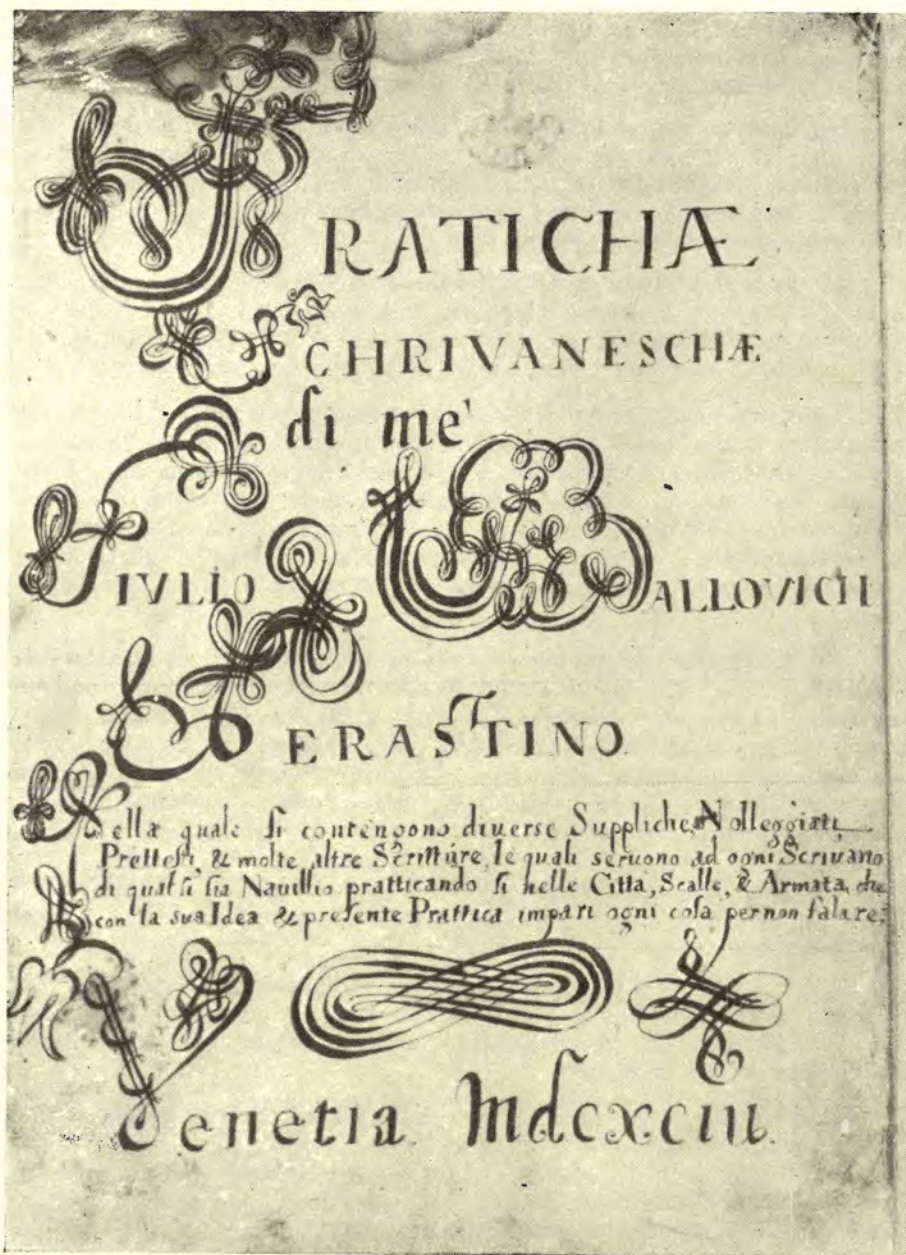 PRATICHÆ
SCHRIVANESCHÆ
di me'
GIVLIO BALLOVICH
PERASTINO.
Nella quale si contengono diuerse Suppliche, Nolleggiati,
Prettesti, & molte altre Scritture, le quali seruono ad ogni Scriuano
di qual si sia Nauillio pratticando si nelle Città, Scalle, & Armata, che
con la sua Idea & presente Prattica impari ogni cosa per non falare:
Venetia MdCXCIII.